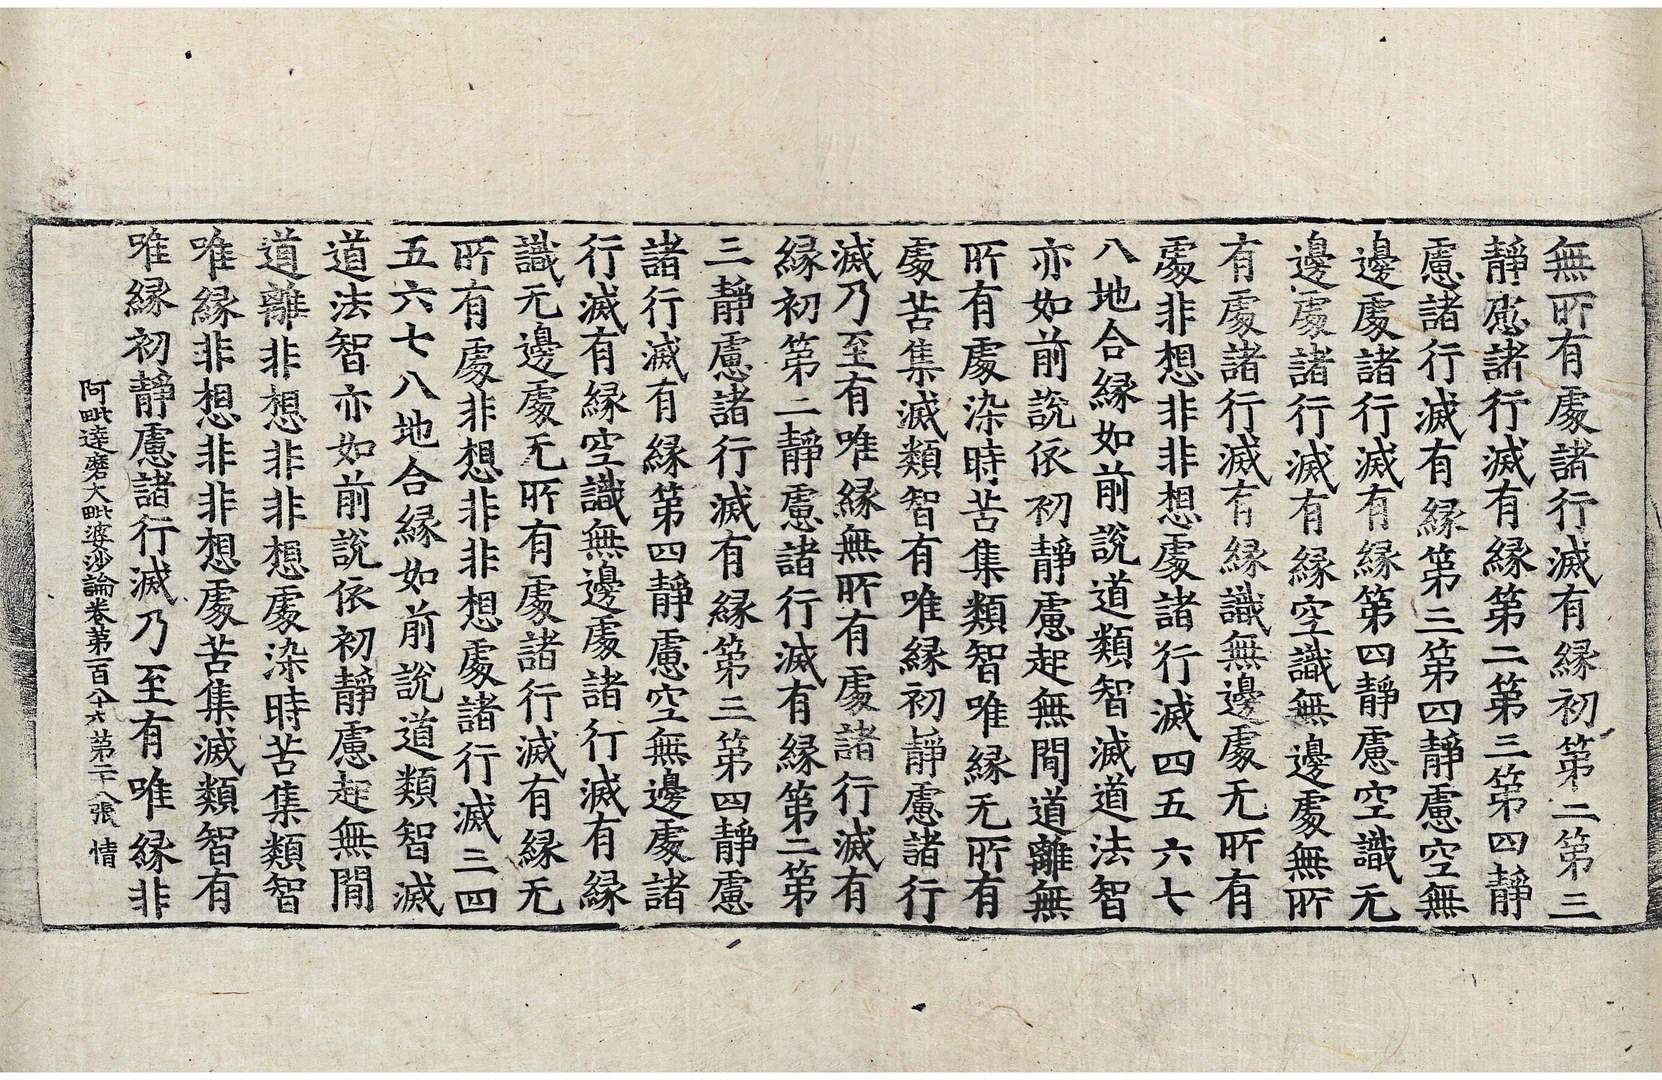 無所有處諸行滅有縁初第二第三
靜慮諸行滅有縁第二第三第四靜
慮諸行滅有縁第三第四靜慮空無
邊處諸行滅有縁第四靜慮空識无
邊處諸行滅有縁空識無邊處無所
有處諸行滅有縁識無邊處无所有
處非想非非想處諸行滅四五六七
八地合縁如前說道類智滅道法智
亦如前說依初靜慮起無閒道離無
所有處染時苦集類智唯縁无所有
處苦集滅類智有唯縁初靜慮諸行
滅乃至有唯縁無所有處諸行滅有
縁初第二靜慮諸行滅有縁第二第
三靜慮諸行滅有縁第三第四靜慮
諸行滅有縁第四靜慮空無邊處諸
行滅有縁空識無邊處諸行滅有縁
識无邊處无所有處諸行滅有縁无
所有處非想非非想處諸行滅三四
五六七八地合縁如前說道類智滅
道法智亦如前說依初靜慮起無閒
道離非想非非想處染時苦集類智
唯縁非想非非想處苦集滅類智有
唯縁初靜慮諸行滅乃至有唯縁非
阿毗達磨大毗婆沙論卷第一百八十六 第二十八張 情